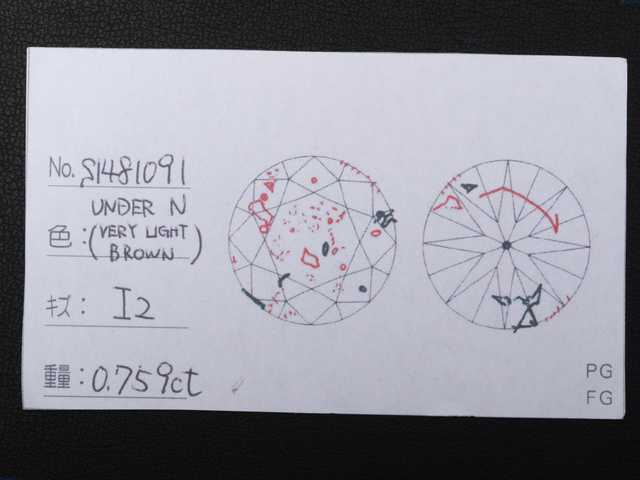 No. S1481091
UNDER N
色:(VERY LIGHT
BROWN)
キズ: I2
重量:0.759ct
PG
FG